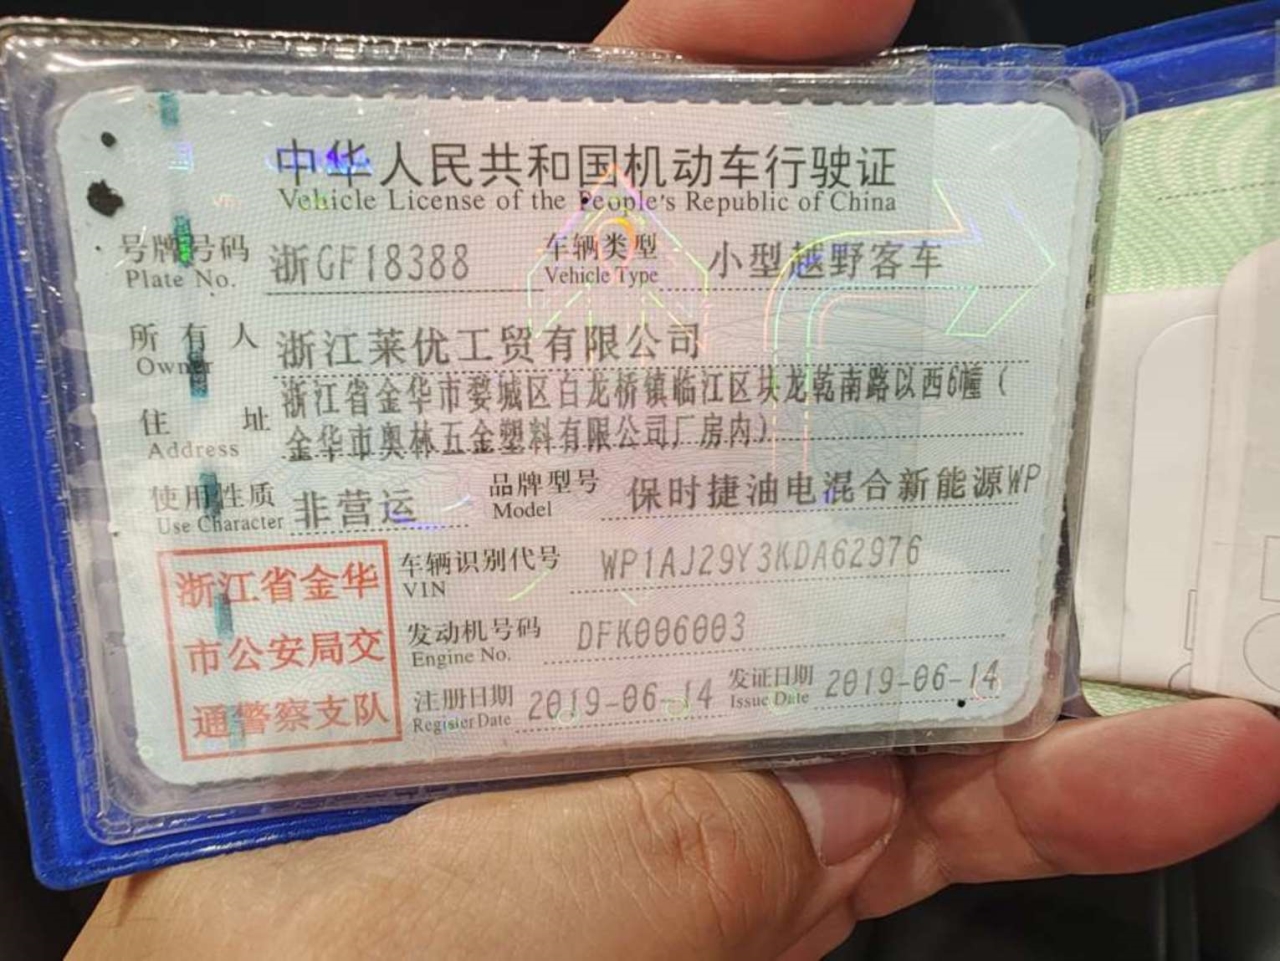 中华人民共和国机动车行驶证
Vehicle License of the People's Republic of China
号牌号码 浙GF18388 车辆类型 小型越野客车
Plate No. Vehicle Type
所有人 浙江莱优工贸有限公司
Owner
住址 浙江省金华市婺城区白龙桥镇临江区块龙乾南路以西6幢（
Address 金华市奥林五金塑料有限公司厂房内）
使用性质 非营运 品牌型号 保时捷油电混合新能源WP
Use Character Model
车辆识别代号 WP1AJ29Y3KDA62976
VIN
发动机号码 DFK006003
Engine No.
注册日期 2019-06-14 发证日期 2019-06-14
Register Date Issue Date
浙江省金华
市公安局交
通警察支队